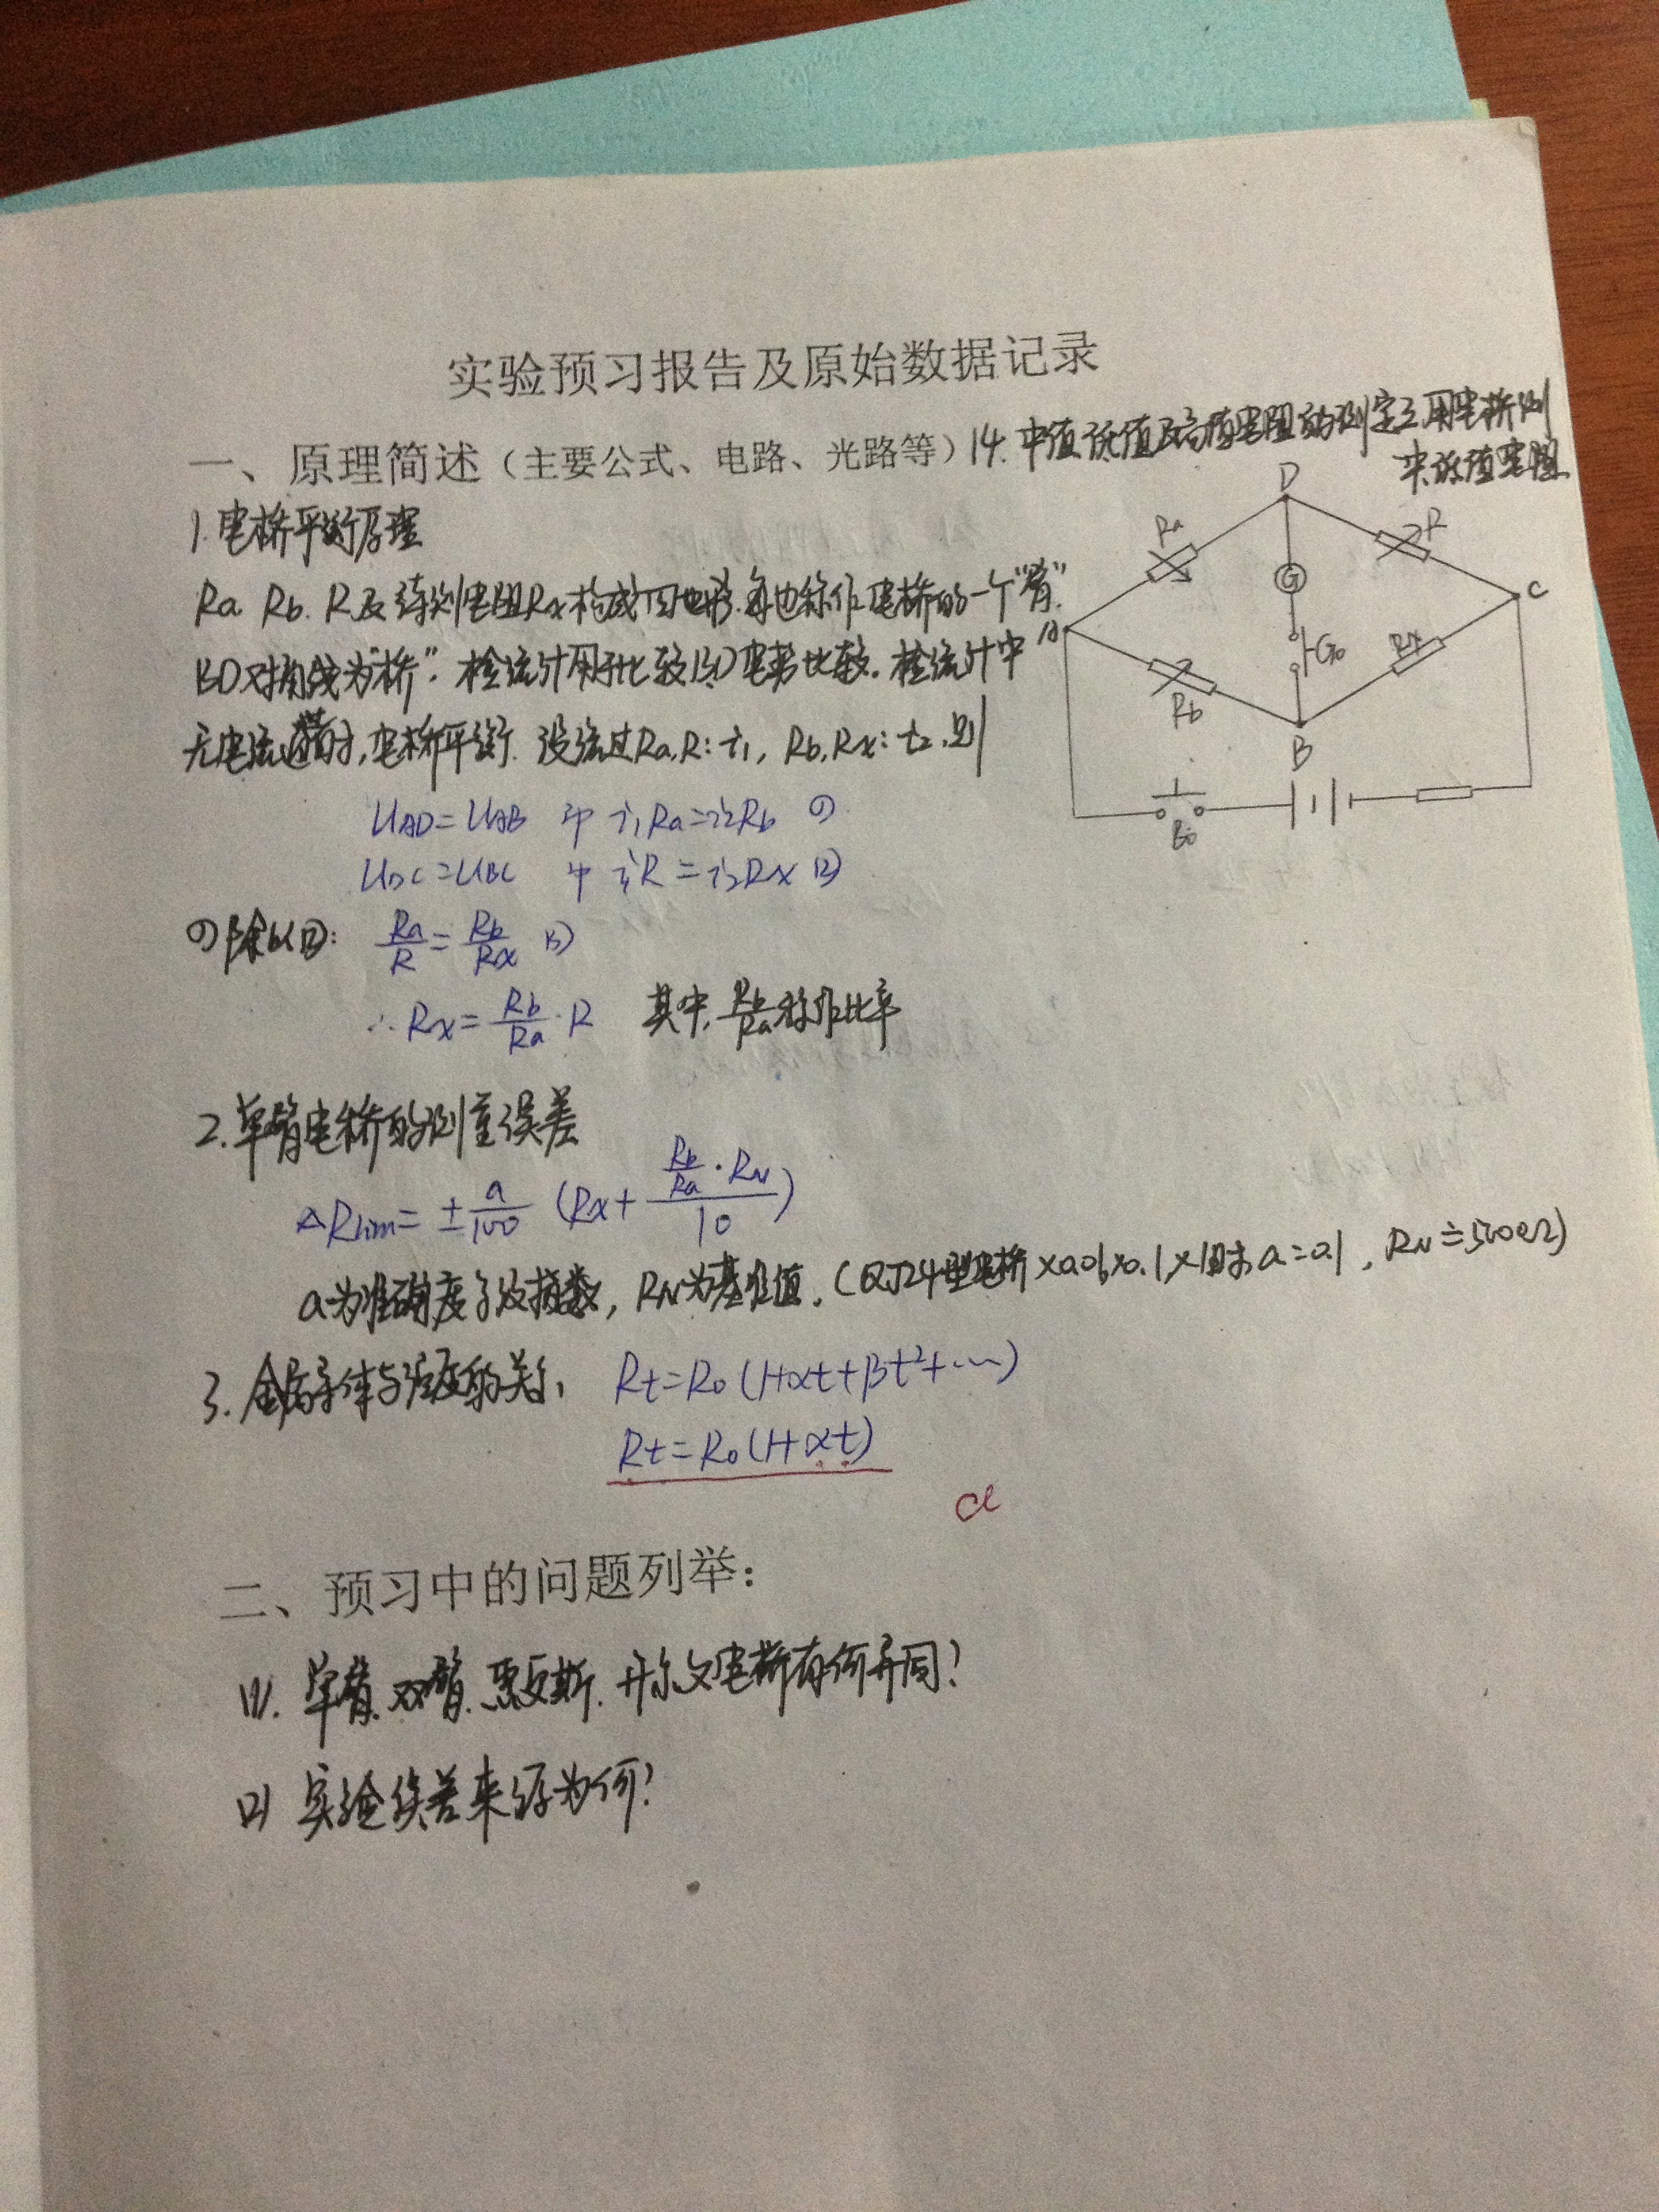 实验预习报告及原始数据记录
一、原理简述（主要公式、电路、光路等）14. 中值、低值及高值电阻的测定之用电桥测
中低值电阻
1. 电桥平衡原理
Ra Rb. R及待测电阻Rx构成四边形. 每边称作电桥的一个"臂".
BD对角线为"桥". 检流计用于比较BD电势比较. 检流计中
无电流通过时, 电桥平衡. 设流过Ra,R: i₁, Rb,Rx: i₂, 则
U_AD=U_AB 即 i₁Ra=i₂Rb ①
U_DC=U_BC 即 i₁R=i₂Rx ②
①除以②: Ra/R = Rb/Rx ③
∴ Rx = Rb/Ra · R 其中, Rb/Ra称作比率
D
Ra
R
G
C
A
G₀
Rx
Rb
B
B₀
2. 单臂电桥的测量误差
△Rlim = ± a/100 (Rx + (Rb/Ra · R_N)/10)
a为准确度等级指数, R_N为基准值. (QJ24型电桥 ×0.01,×0.1,×1时, a=0.1, R_N=5000Ω)
3. 金属导体与温度的关系 Rt=R₀(1+αt+βt²+…)
Rt=R₀(1+αt)
二、预习中的问题列举:
(1). 单臂. 双臂. 惠更斯. 开尔文电桥有何异同?
(2) 实验误差来源为何?